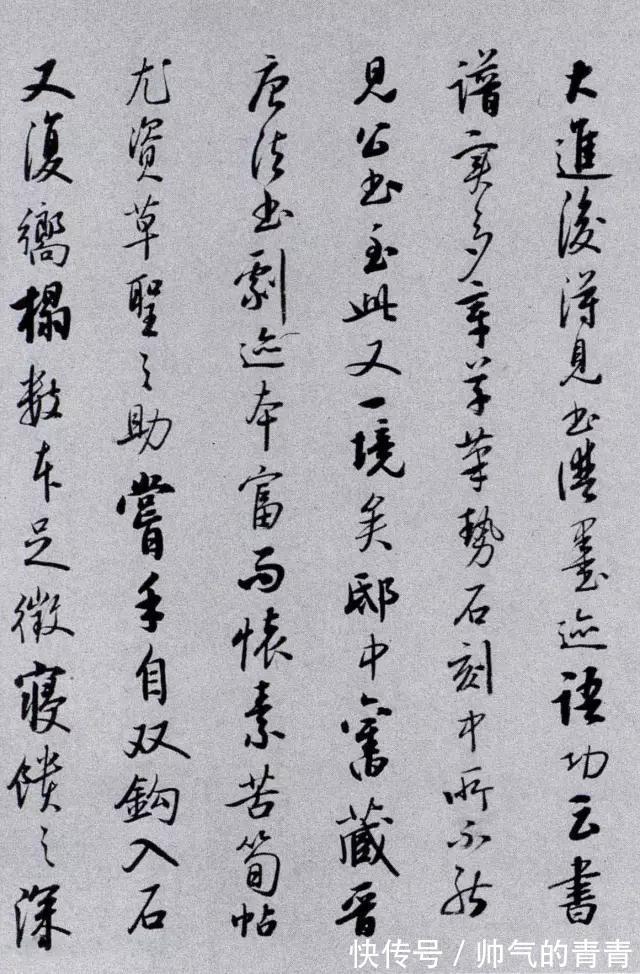 大進後得見書譜墨迹語功云書
譜實多章草筆勢石刻中所不能
見公書至此又一境矣邸中舊藏晉
唐法書劇迹本富而懷素苦筍帖
尤資草聖之助嘗手自双鈎入石
又復嚮榻數本足徵寢饋之深
快传号/帅气的青青